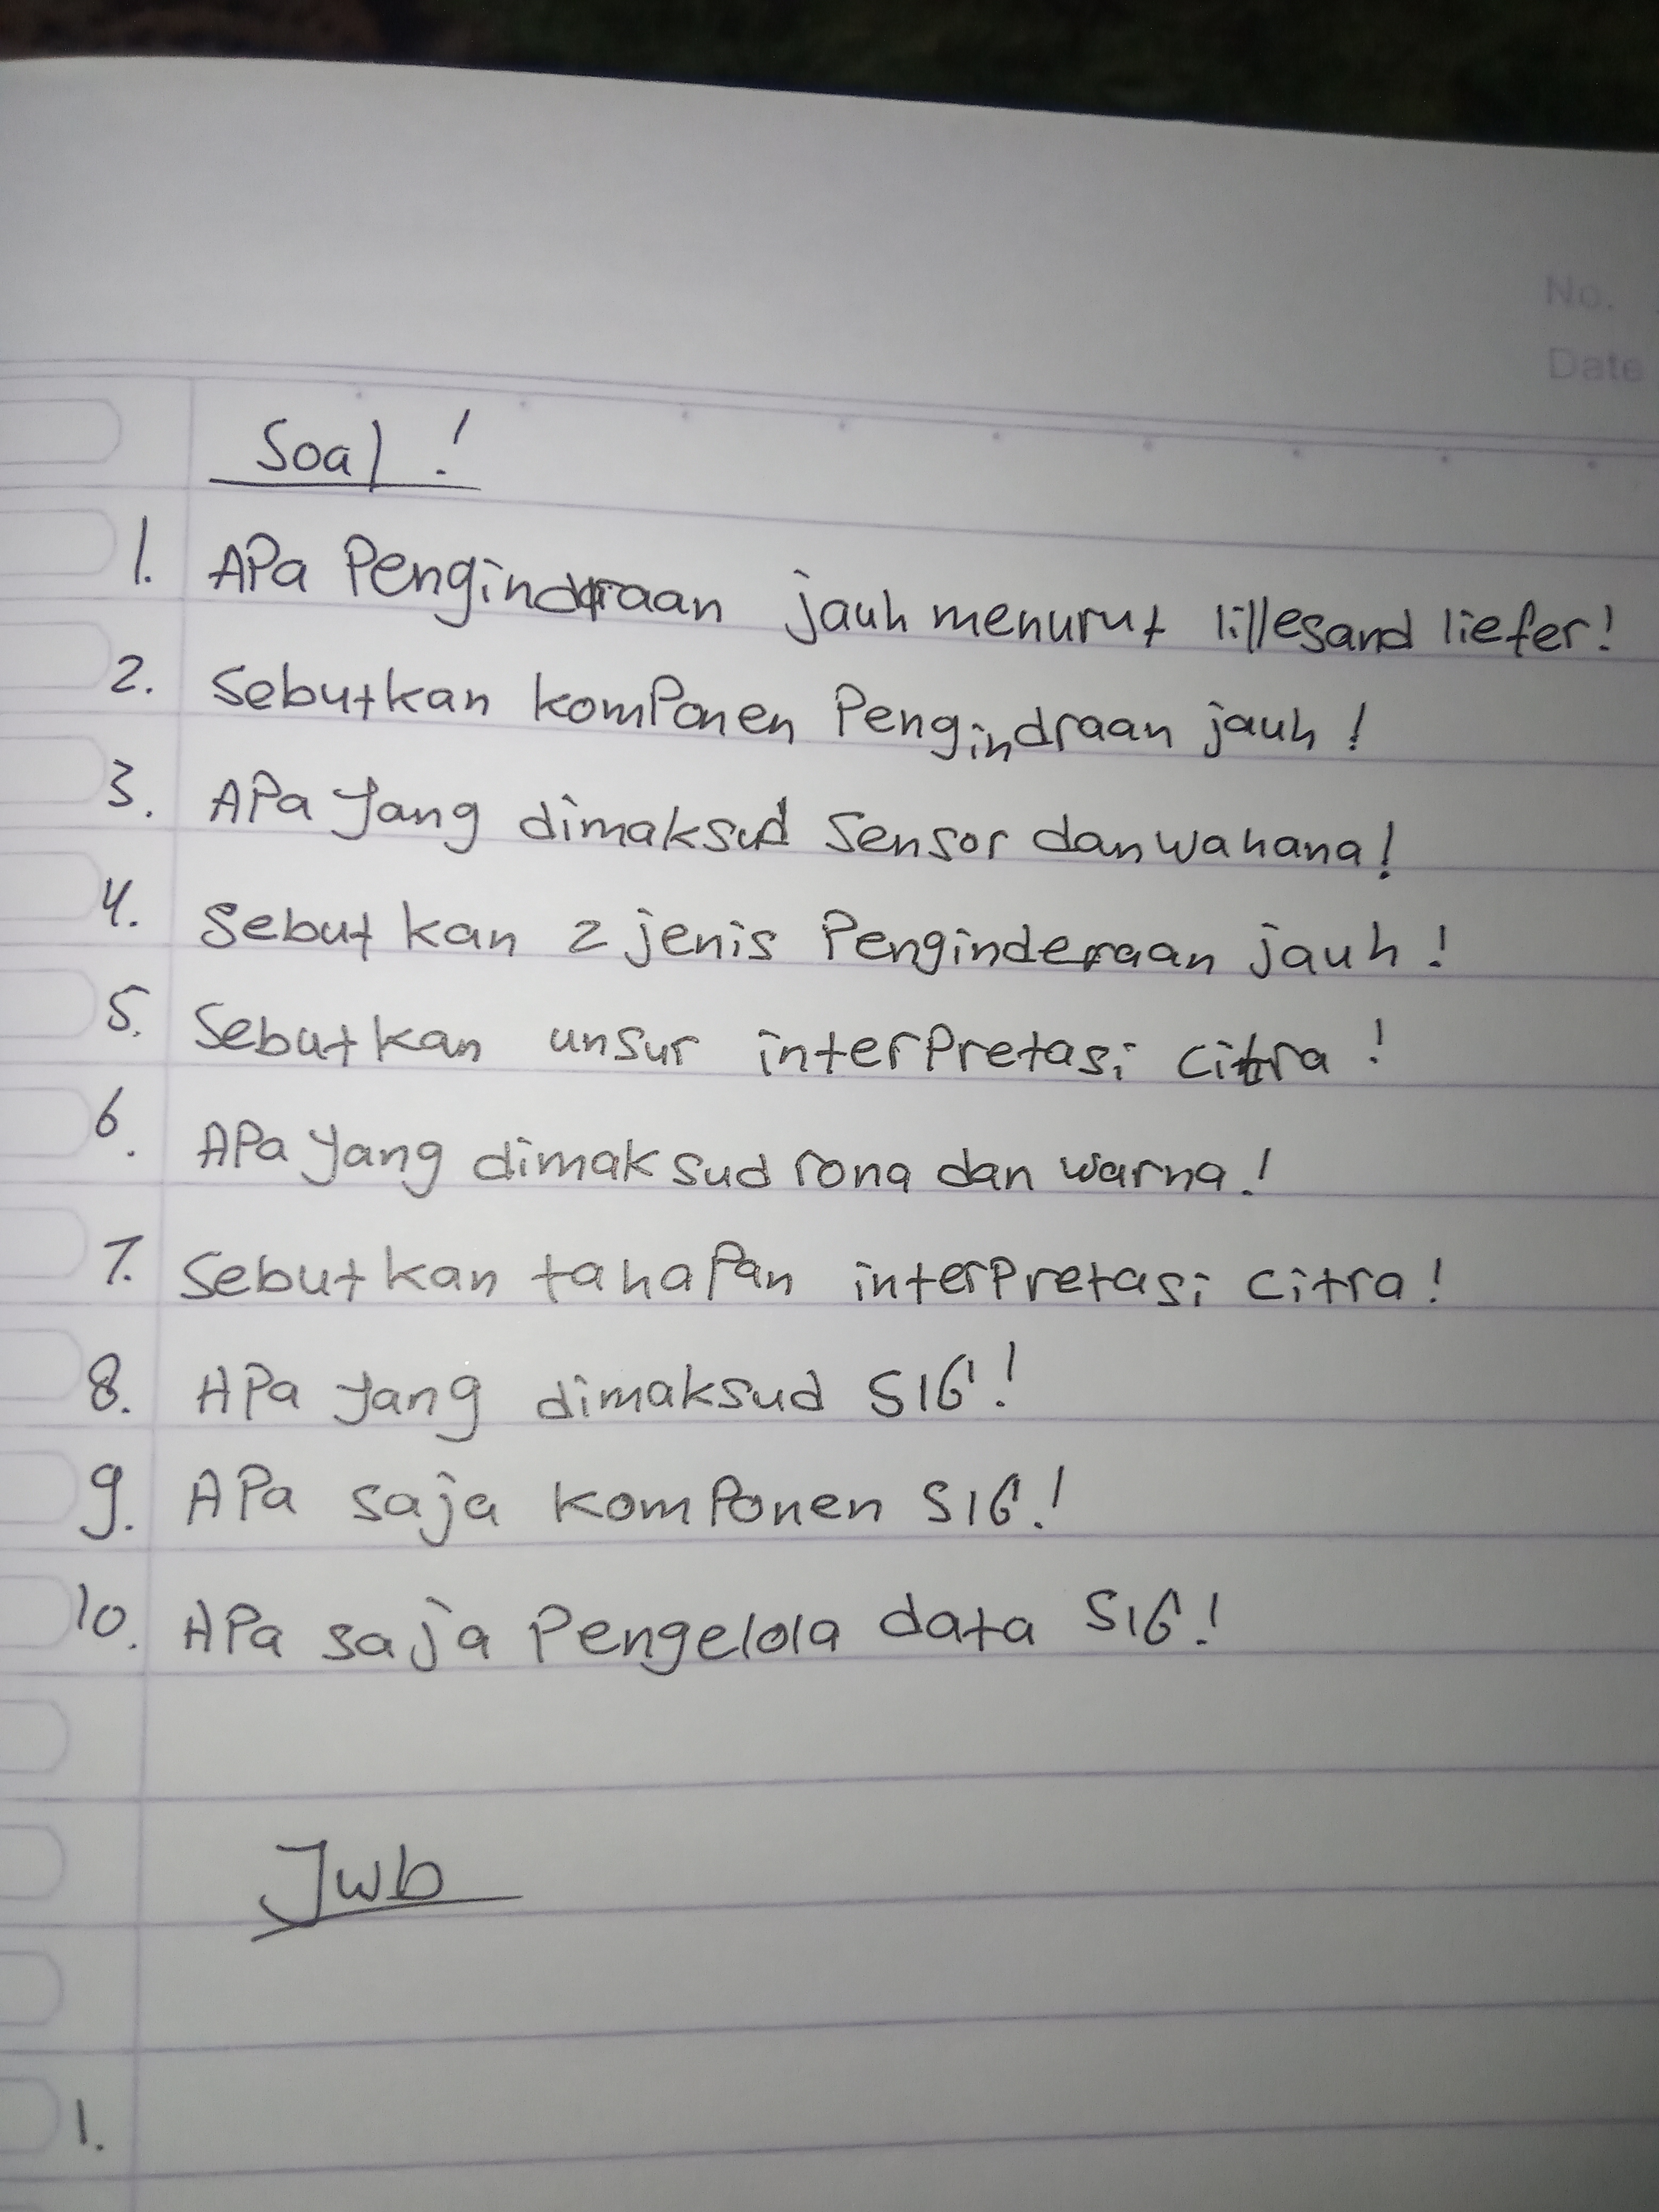 No.
Date
Soal !
1. APa Pengindraan jauh menurut lillesand liefer!
2. Sebutkan komPonen Pengindraan jauh !
3. APa yang dimaksud Sensor dan wahana!
4. Sebutkan 2 jenis Penginderaan jauh !
5. Sebutkan unsur interPretasi citra !
6. APa yang dimaksud rona dan warna!
7. Sebutkan tahaPan interPretasi citra!
8. APa yang dimaksud SIG!
9. APa saja komPonen SIG!
10. APa saja Pengelola data SIG!
Jwb
1.